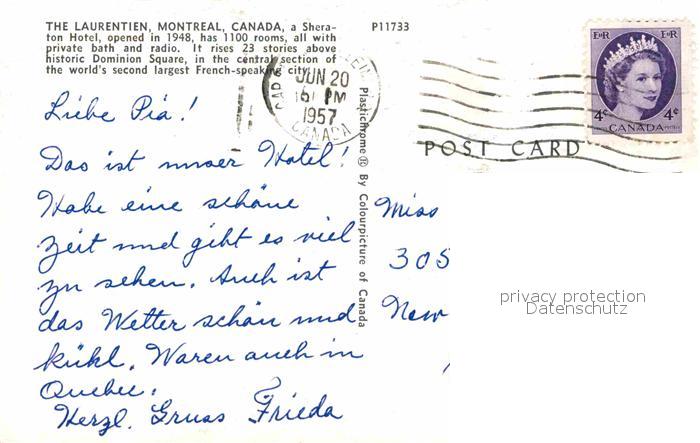 THE LAURENTIEN, MONTREAL, CANADA, a Shera-
ton Hotel, opened in 1948, has 1100 rooms, all with
private bath and radio. It rises 23 stories above
historic Dominion Square, in the central section of
the world's second largest French-speaking city.
P11733
JUN 20
PM
1957
CANADA
E II R
E II R
4¢
4¢
CANADA
POST CARD
Plastichrome ® By Colourpicture of Canada
Liebe Pia!
Das ist unser Hotel!
Habe eine schöne
Zeit und gibt es viel
zu sehen. Auch ist
das Wetter schön und
kühl. Waren auch in
Quebec.
Herzl. Gruss Frieda
Miss
305
New
privacy protection
Datenschutz